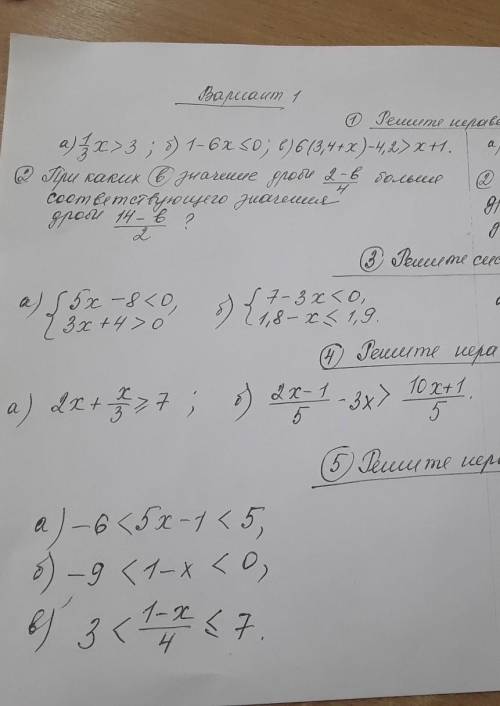 Вариант 1
① Решите нерав
а) 1/3 x > 3 ; б) 1 - 6x ≤ 0; в) 6(3,4+x) - 4,2 > x + 1.
② При каких в значение дроби (2-в)/4 больше
соответствующего значения
дроби (14-в)/2 ?
③ Решите сис
а) { 5x - 8 < 0,
3x + 4 > 0
б) { 7 - 3x < 0,
1,8 - x ≤ 1,9.
④ Решите нера
а) 2x + x/3 ≥ 7 ; б) (2x-1)/5 - 3x > (10x+1)/5.
⑤ Решите нера
а) -6 < 5x - 1 < 5,
б) -9 < 1 - x < 0,
в) 3 < (1-x)/4 ≤ 7.